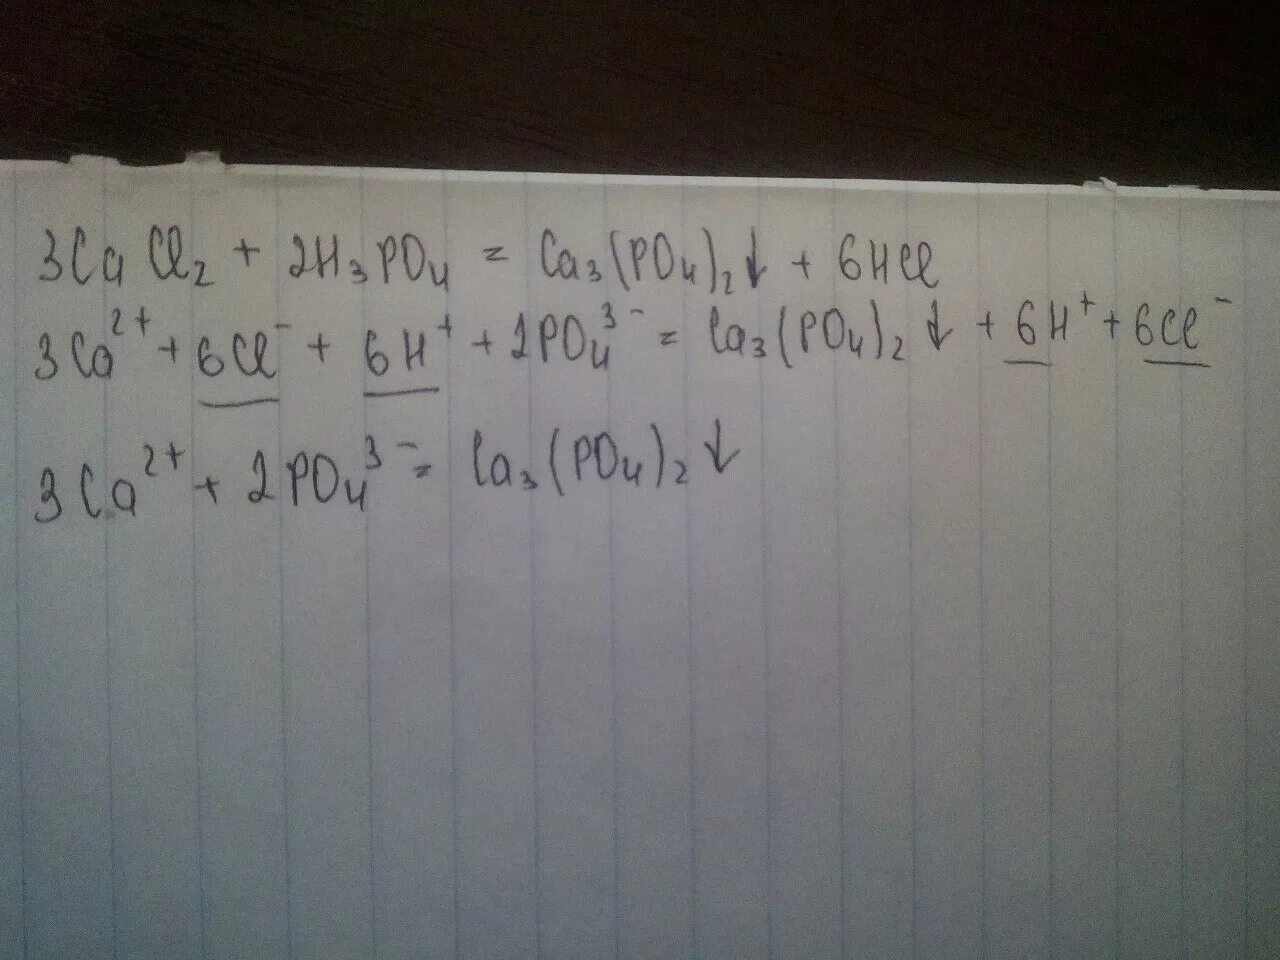 3CaCl₂ + 2H₃PO₄ = Ca₃(PO₄)₂↓ + 6HCl
3Ca²⁺ + 6Cl⁻ + 6H⁺ + 2PO₄³⁻ = Ca₃(PO₄)₂↓ + 6H⁺ + 6Cl⁻
3Ca²⁺ + 2PO₄³⁻ = Ca₃(PO₄)₂↓